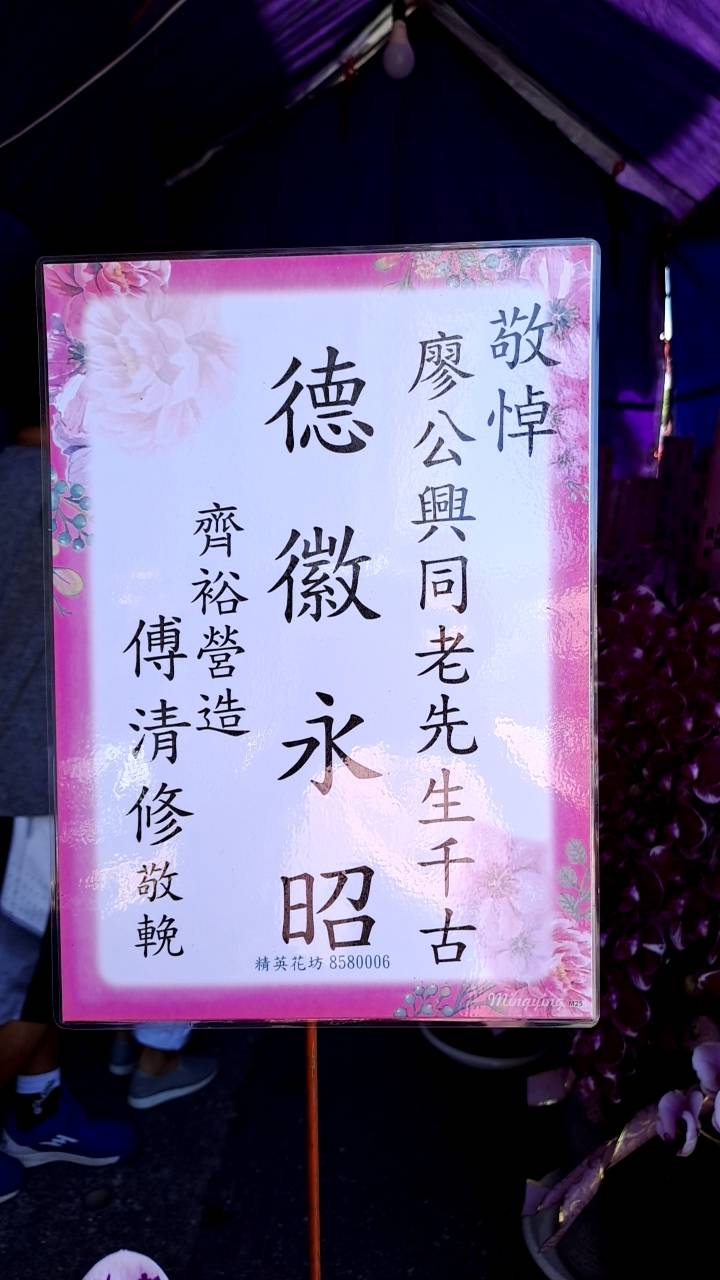 敬悼
廖公興同老先生千古
德徽永昭
齊裕營造
傅清修敬輓
精英花坊 8580006
Mingying M25